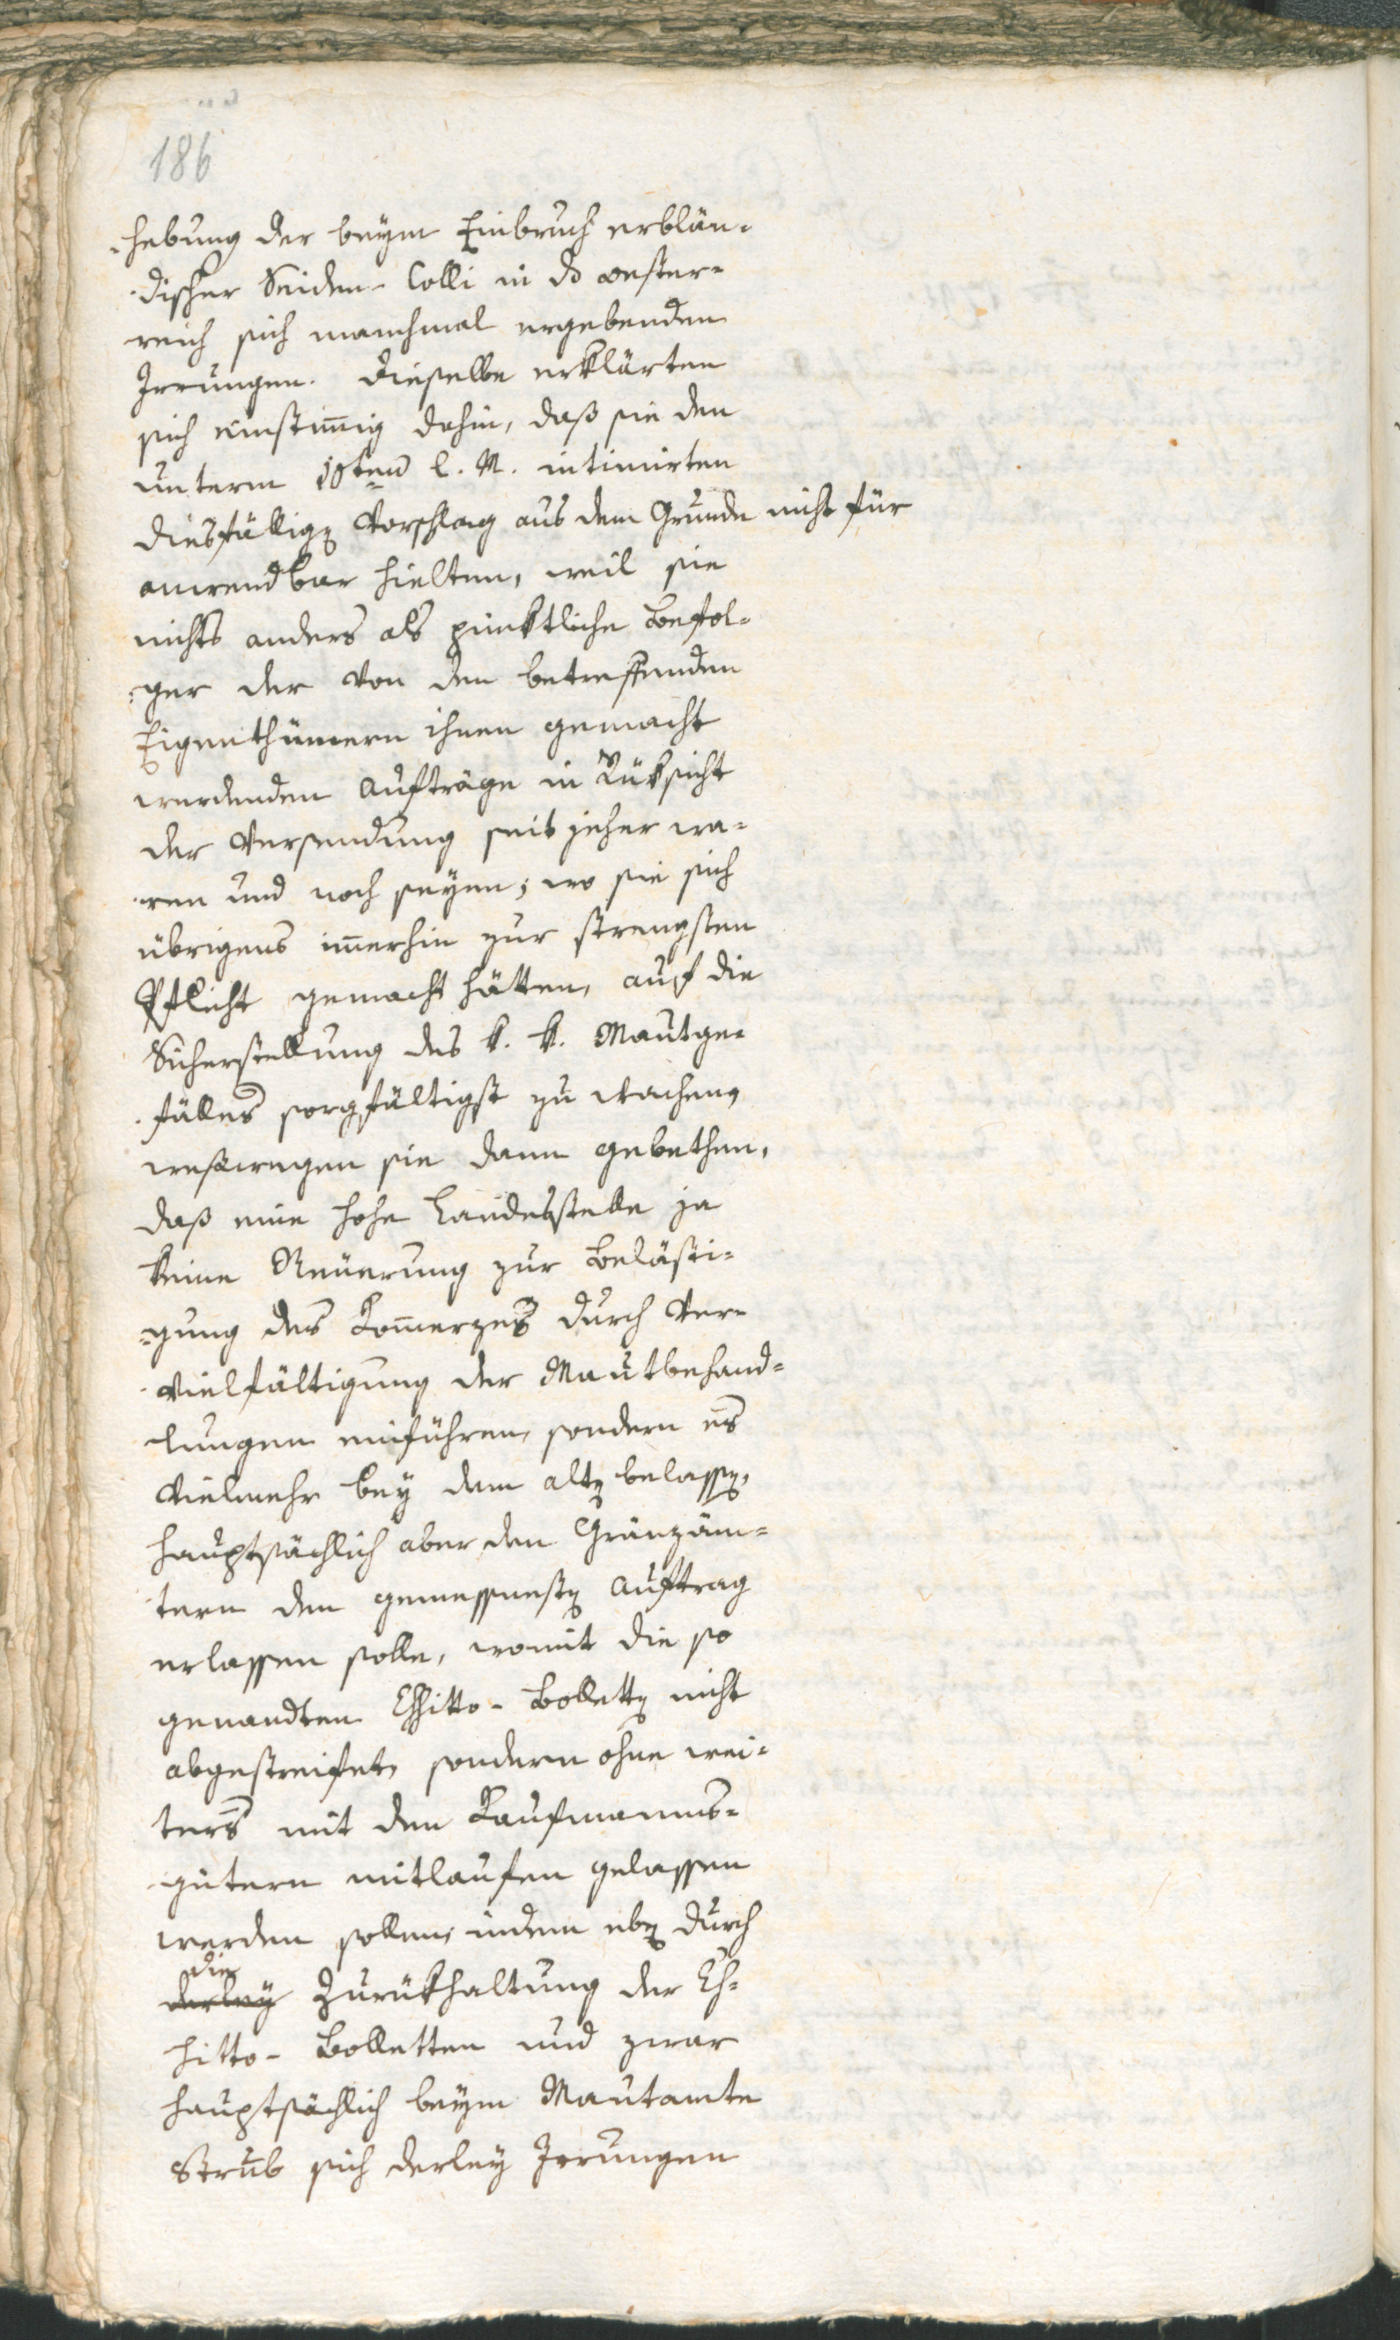 186
-hebung der beym Einbruch erblän-
-discher Seiden-Colli in dΣ oester-
reich sich manchmal ergebenden
Irrungen. Dieselbe erklärten
sich einstim̄ig dahin, daß sie den
unterm 18ten l. M. intimirten
diesfällig(en) Vorschlag aus dem Grunde nicht für
anwendbar hielten, weil sie
nichts anders als pünktliche Befol-
-ger der von den betreffenden
Eigenthümern ihnen gemacht
werdenden Aufträge in Rüksicht
der Versendung seit jeher wa-
-ren und noch seyen; wo sie sich
übrigens im̄erhin zur strengsten
Pflicht gemacht hätten, auf die
Sicherstellung des k. k. Mautge-
-fälles sorgfältigst zu wachen,
weßwegen sie dann gebethen,
daß eine hohe Landesstelle ja
keine Neuerung zur Belästi-
-gung des Kom̄erzes durch Ver-
-vielfältigung der Mautbehand-
lungen einführen, sondern es
vielmehr bey dem alt(en) belass(en),
hauptsächlich aber den Gränzäm-
tern den gemessenst(en) Auftrag
erlassen solle, womit die so
genandten Essitto-Bollett(en) nicht
abgestreifet, sondern ohne wei-
ters mit den Kaufmanns-
-gütern mitlaufen gelassen
werden sollen, indem eb(en) durch
die
derley Zurükhaltung der Es-
sitto-Bolletten und zwar
hauptsächlich beym Mautamte
Strub sich derley Irrungen